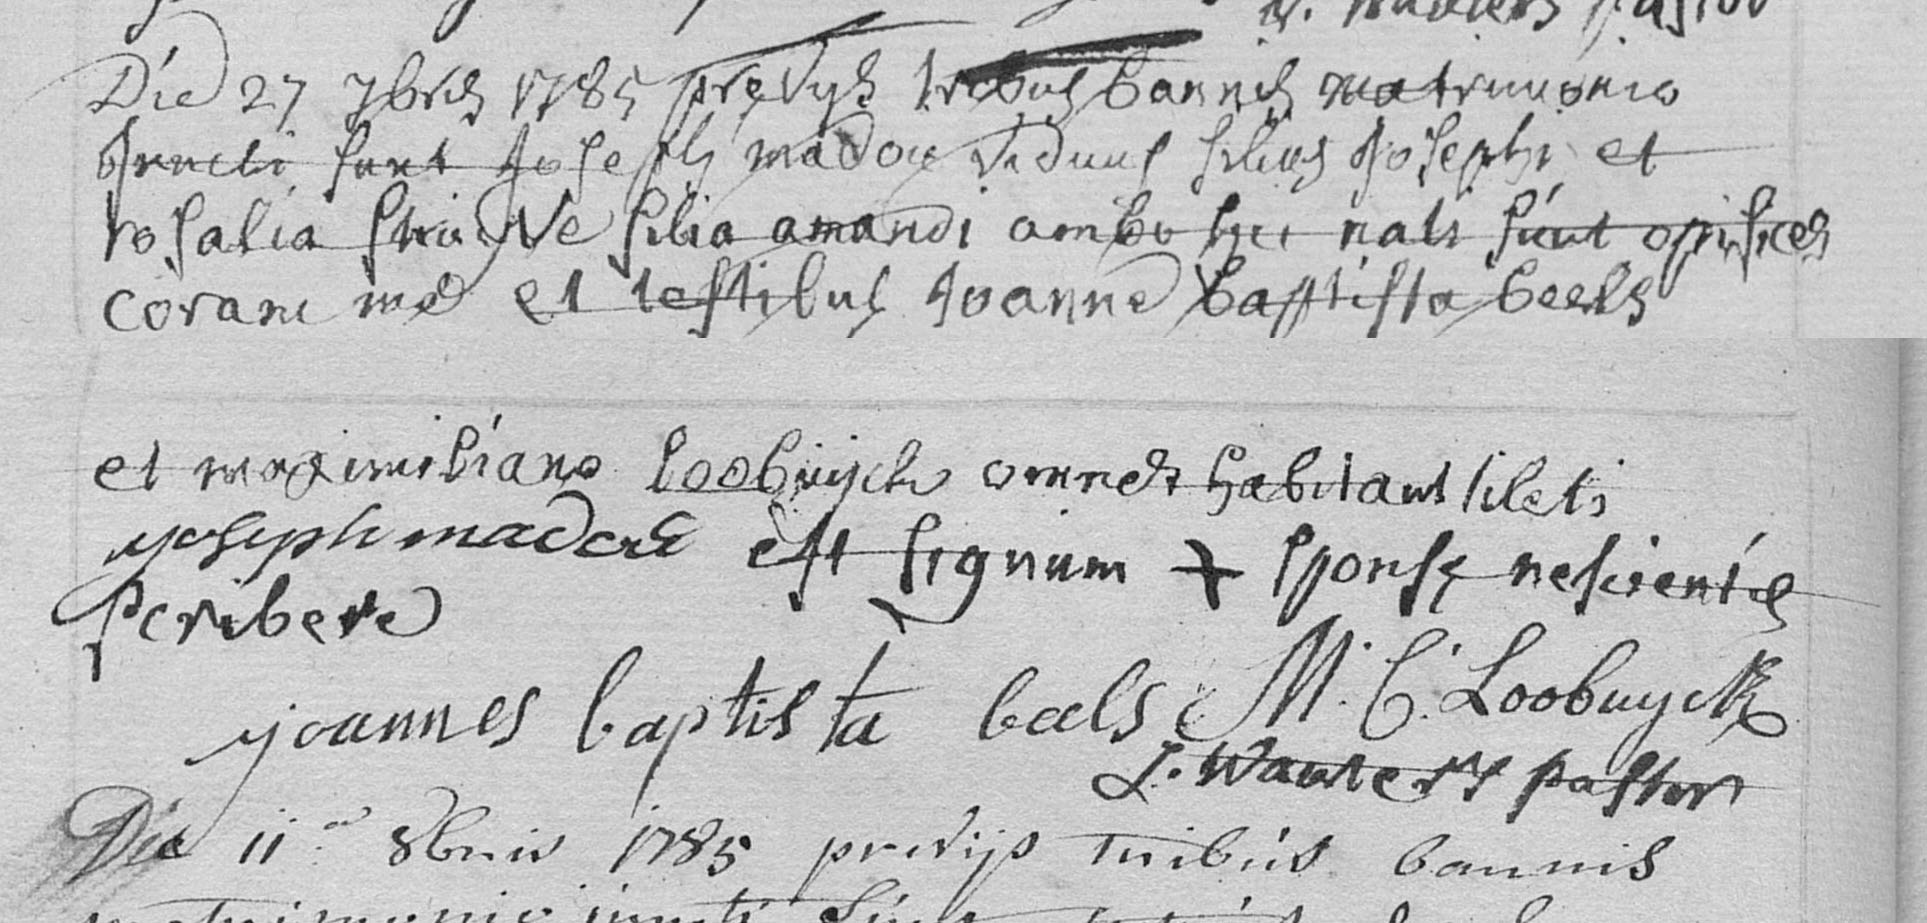 wauters pastor
Die 27 7bris 1785 prevys tribus bannis matrimonio
Juncti sunt Joseph madou viduus filius Josephi et
rosalia filia amandi ambo hic nati sunt opifices
coram me et testibus Joanne baptista beels
et maximiliano loobuyck omnes habitant tileti
joseph madou est signum + sponse nescientis
scribere
joannes baptista beels M: C: Loobuyck
J. Wauters pastor
Die 11a 8bris 1785 previjs tribus bannis
matrimonio iuncti sunt